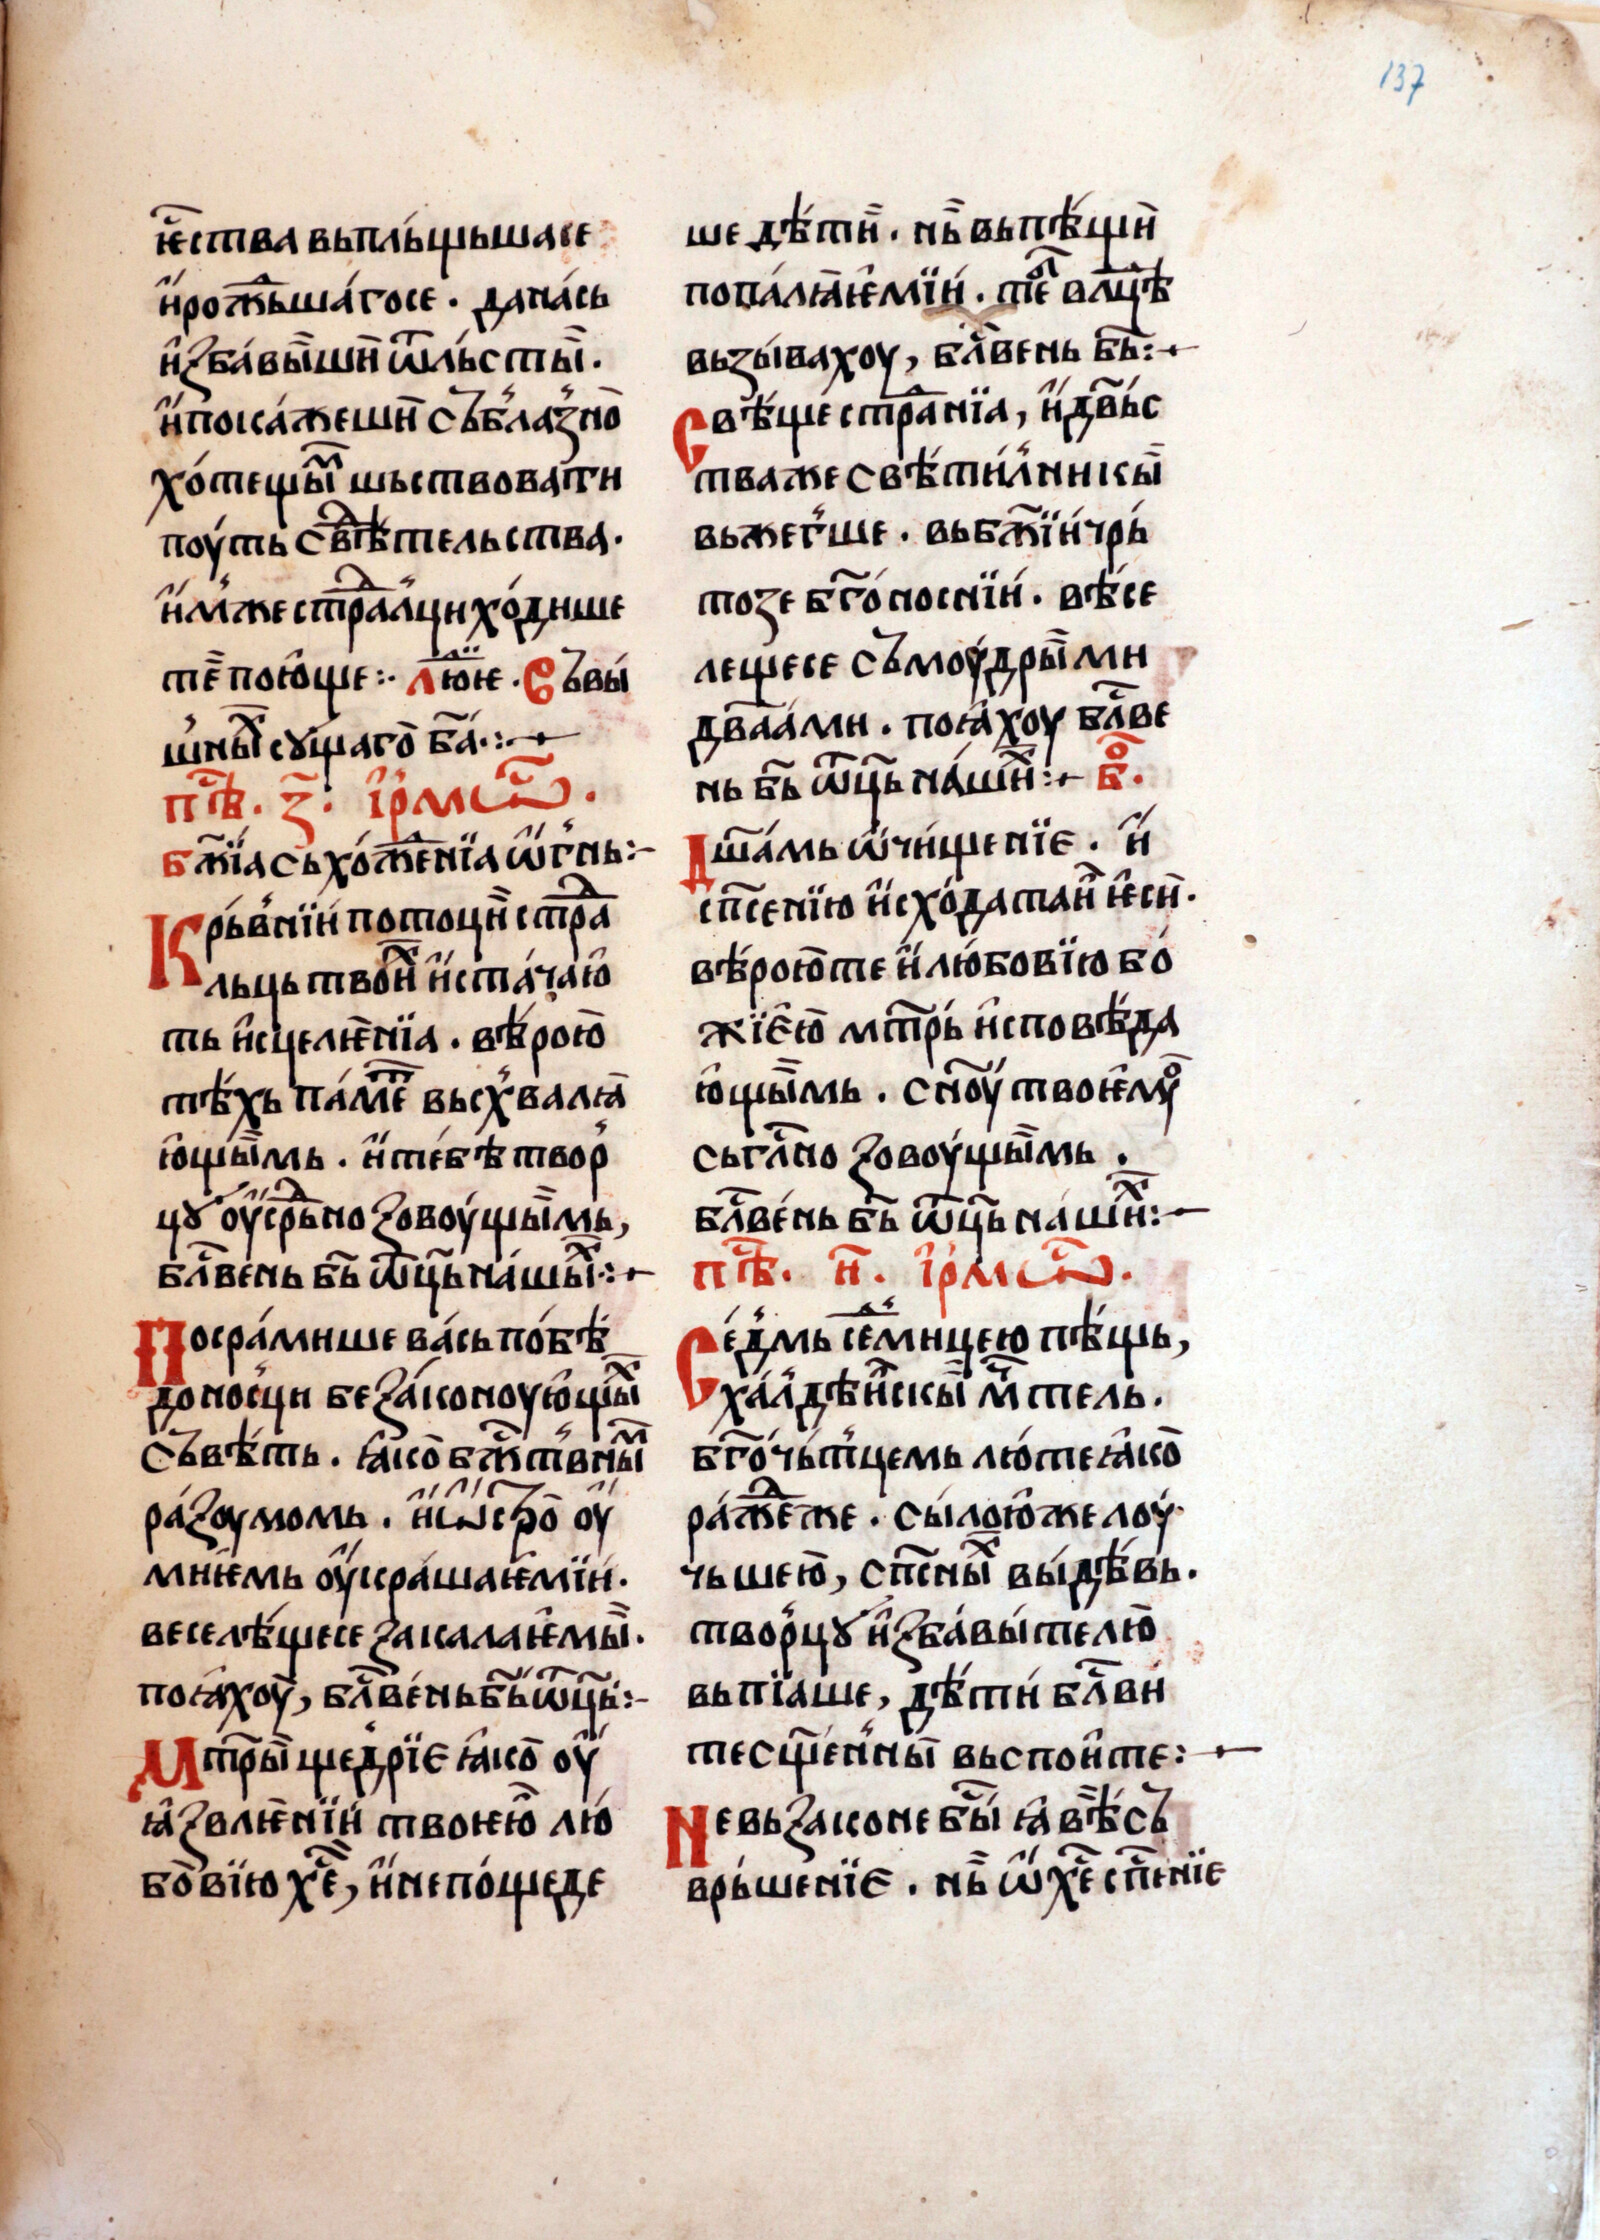 137
ѥ҆͡ства вьпль́щьшасе
и҆́рож̑ьша́госе. дана́сь
и҆ꙁба́вы̏ши̏ ѿль́сты̏.
и҆́покаⷤ҇жеши̏ съб̾лаꙁ̾но̀
хо́тещыⷨ҇ шьствовати
поу́ть св͡ѣтельства.
и҆́м̾же стрⷭ҇ал̾ци хо́дише
те̏ пою҆ще:· лю́ѥ. Съвы́
шныⷯ҇ сꙋщаго̀ б͡а·:·
пⷭ҇ѣ. ꙁ҃. і҆рмѡⷭ҇.
бж͡їа съхо́ж̑енїа ѡ҆́г̾нь:·
Крь́в̾нїи́ потоци̏ стрⷭ҇а
льць твои́ⷯ҇ и҆́ста́чаю҆
ть и҆сцелѥ́нїа. вѣ́рою̀
тѣ́хь па́меⷮ҇ вьсх̾валꙗ
ю҆щы̏мь. и҆́те́бѣ твор̾
цꙋ оу҆́срⷣ҇ьно ꙁовоу́щы̏мь,
бл͡вень б͡ь ѿц͡ь на́шыⷯ҇:·
Посра́мише ва́сь по́бѣ
доно́с̾ци беꙁа́коноую҆щыⷯ҇
съвѣ́ть. ꙗ҆ко̀ бжⷭ҇͡т̾вныⷨ҇
ра́ꙁоумомь. и҆́ѡ҆́стро̀ оу҆́
мнѥмь оу҆́кра́шаѥ҆мїи́.
веселѣ́щесе ꙁакалаѥ҆мы̏.
поꙗ҆́хоу̀, бл͡ве́нь б͡ь ѿц͡ь:·
Мтⷭ҇ры̏ ще́д̾рїе ꙗ҆ко̀ оу҆́
ꙗ҆́ꙁвлѥ́нїи́ твоѥю̀ лю́
бо̀вїю хⷭ҇е̏, и҆́непо́щеде
ше дѣ́ти̏. нь̏ вьпѣ́щи̏
попа́лꙗѥ҆мїи́. теⷠ҇ѣ вⷧ҇цⷣѣ
вьꙁы́вахоу, бл͡вень б͡ь:·
Свѣ́ще стрⷭ҇анїа, и҆́дв͡ьс
тваже свѣти́л̾никы̏
вьжег̾ше. вьбж͡їи́ чрь́
тоꙁе бг͡о́носнїи́. вѣ́се
лещесе съмоу́дры̏ми
дв͡аами. поꙗ҆́хоу бл͡ве
нь б͡ь ѿц͡ь на́шиⷯ҇:· боⷢ҇.
Дш͡а́мь ѡ҆́чи́щенїе. и҆́
сп͡сенїю и҆́схо́датаи̏ ѥ҆си̏.
вѣ́рою̀те и҆́лю́бовїю бо́
жїе҆ю̀ мт͡рь́ и҆сповѣ́да
ю҆щы̏мь. сн͡оу́ твоѥ҆моу̀
сьгл͡но ꙁовоу́щы̏мь.
бл͡ве́нь б͡ь ѿц͡ь на́шиⷯ҇:·
пⷭ҇ѣ. и҃. і҆рмѡⷭ҇.
Се́д̾мь седⷨ҇мицею пѣ́щь,
ха́л̾дѣи̏скы̏ мⷱ҇тель.
бг͡о́чь́т̾цемь лю́те ꙗ҆ко̀
ра́ж̑еже. сы́лою҆же лоу́
чьшею̀, сп͡сныⷯ҇ вы́дѣ́вь.
твор̾цꙋ и҆́ꙁба́вы́телю̀
вьпїаше, дѣ́ти́ бл͡ви
те сщ͡е́н̾ны̏ вьспои҆те:·
Невьꙁаконе бⷭ҇ы́ ꙗ҆в̾ѣ съ
врь́шенїе. нь̏ ѡ҆́ хⷭ҇е̏ сп͡сенїе